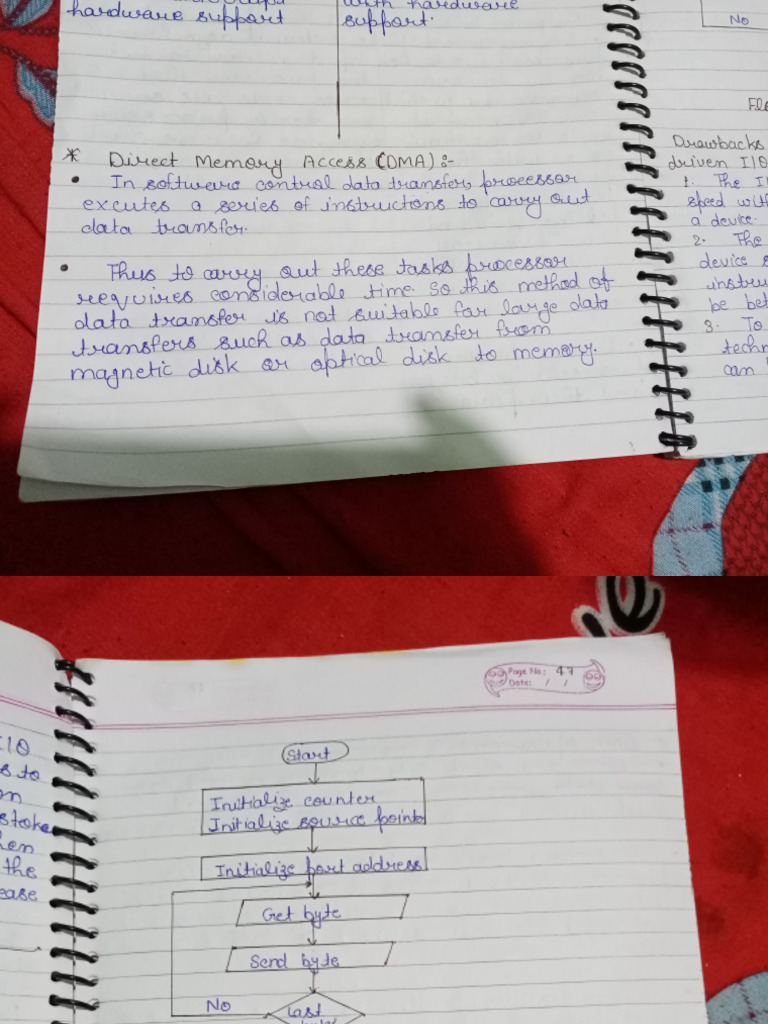 hardware support
with hardware
support.
No
* Direct Memory Access (DMA) :-
• In software control data transfer, processor
excutes a series of instructons to carry out
data transfer.
• Thus to carry out these tasks processor
requires considerable time. So this method of
data transfer is not suitable for large data
transfers such as data transfer from
magnetic disk or optical disk to memory.
Drawbacks
driven I/O
1. The
speed
a device.
2. The
device
be
3. To
can
Page No: 47
Date: / /
I/O
to
the
Start
Initialize counter
Initialize source point
Initialize port address
Get byte
Send byte
No
Last